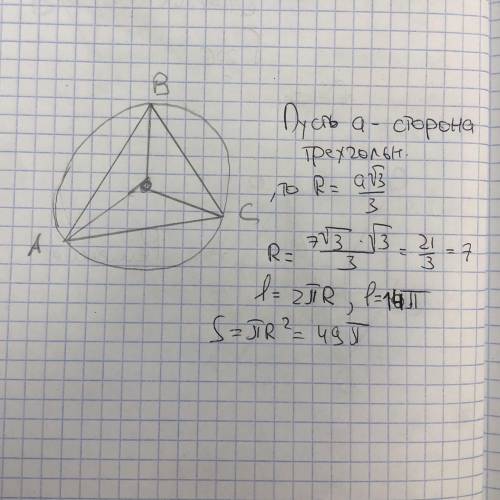 B
A
C
Пусть a - сторона
трехгольн.
, то R = a√3/3
R = 7√3 · √3 / 3 = 21/3 = 7
l = 2πR, l = 14π
S = πR² = 49π